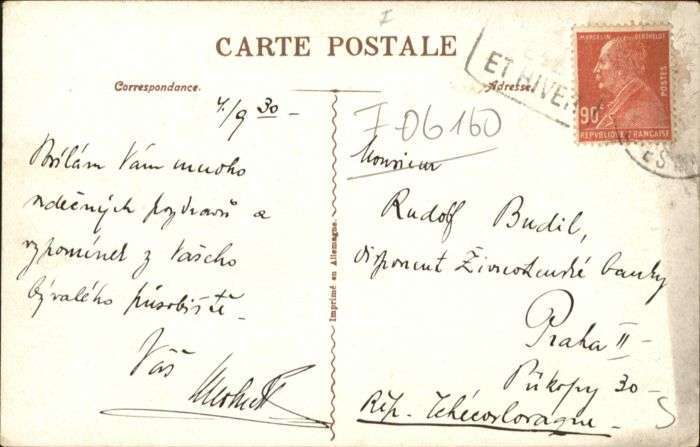 CARTE POSTALE
Correspondance.
Adresse
4/9 30 -
Posílám Vám mnoho
srdečných pozdravů a
vzpomínek z Vašeho
bývalého působiště -
Váš
I
F 06160
Monsieur
Rudolf Budil,
disponent Živnostenské banky
Praha II -
Příkopy 30 -
Rép. Tchécoslovaque -
Imprimé en Allemagne.
ET HIVER
MARCELIN BERTHELOT
POSTES
90c
REPVBLIQVE FRANÇAISE